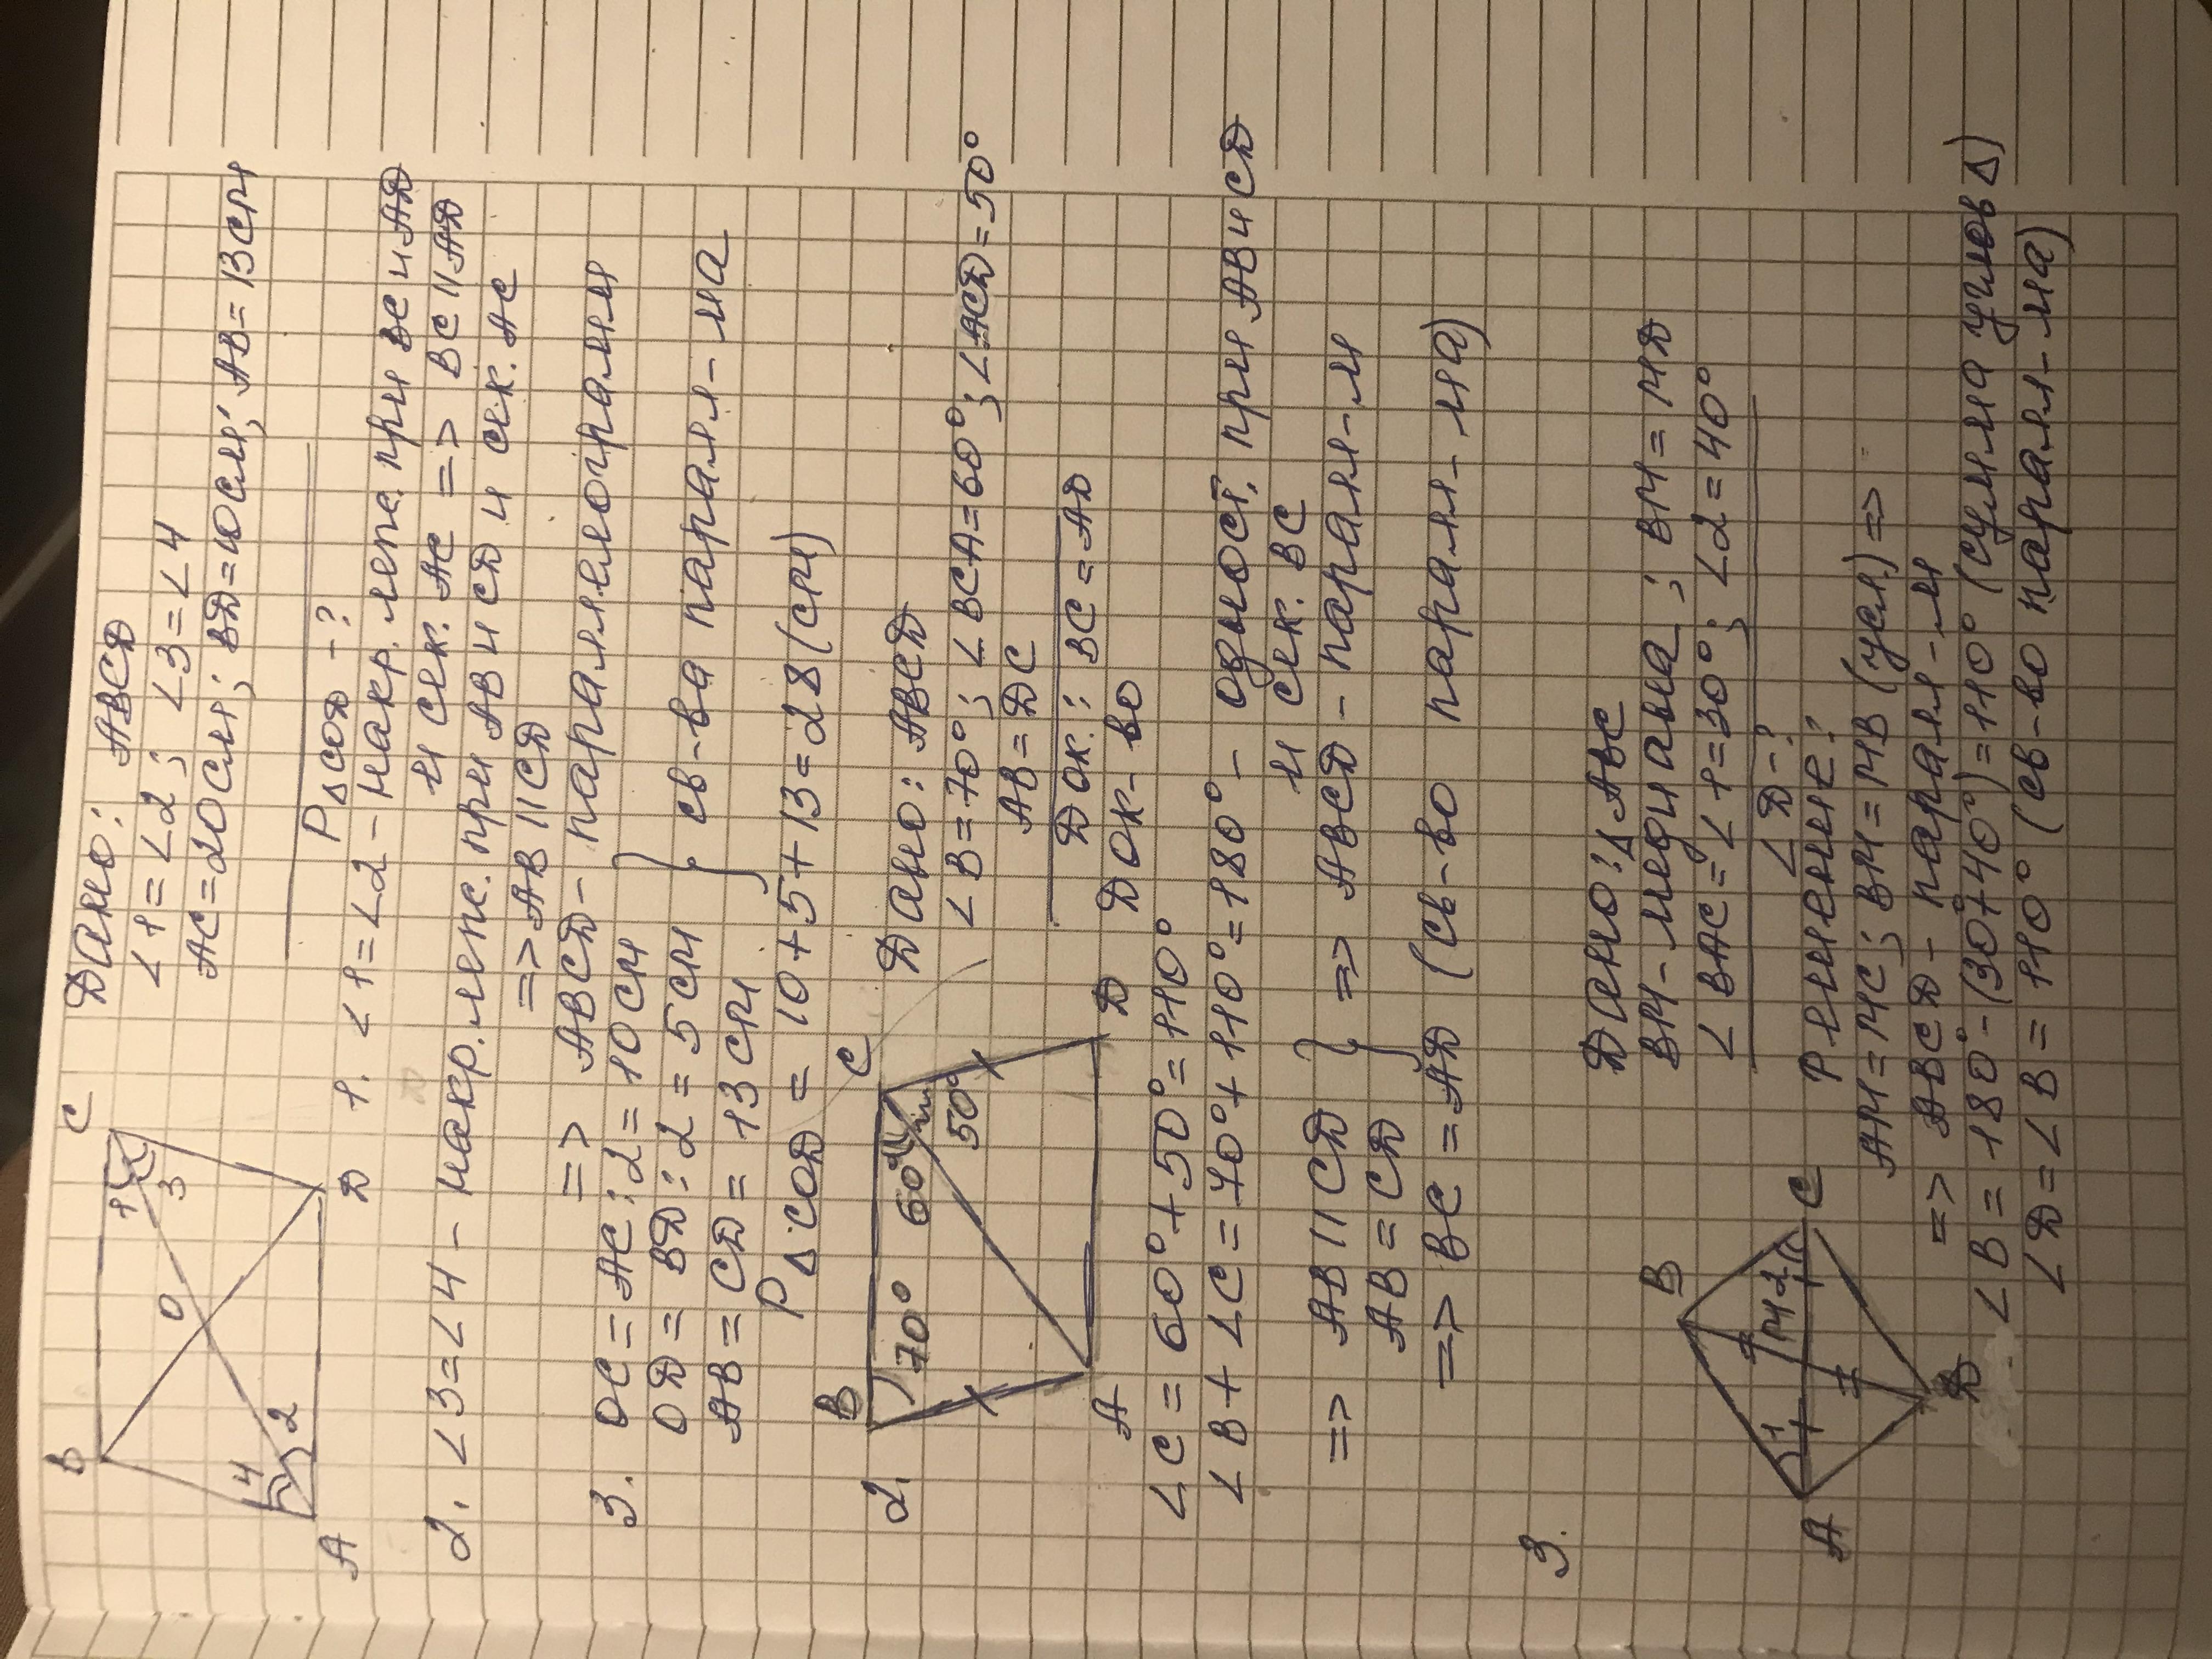 Дано: ABCD
∠1=∠2; ∠3=∠4
AC=20см; BD=10см; AB=13см
P△COD-?
B
C
1
3
O
4
2
A
D
1. ∠1=∠2 - накр. леж. при BC и AD
и сек. AC => BC || AD
2. ∠3=∠4 - накр. леж. при AB и CD и сек. AC
=> AB || CD
=> ABCD - параллелограмм
3. OC = AC:2 = 10см
OD = BD:2 = 5см
AB = CD = 13см
} св-ва паралл-ма
P△COD = 10+5+13=28(см)
2.
B
C
70°
60°
50°
A
D
Дано: ABCD
∠B=70°; ∠BCA=60°; ∠ACD=50°
AB=DC
Док.: BC=AD
Док-во
∠C = 60°+50°=110°
∠B+∠C=70°+110°=180° - одност. при AB и CD
и сек. BC
=> AB || CD
AB = CD
} => ABCD - паралл-м
=> BC = AD (св-во паралл-ма)
3.
B
1
M
2
A
C
D
Дано: △ABC
BM - медиана; BM=MD
∠BAC=∠1=30°; ∠2=40°
∠D-?
Решение:
AM=MC; BM=MB (усл.) =>
=> ABCD - паралл-м
∠B=180°-(30°+40°)=110° (сумма углов △)
∠D=∠B=110° (св-во паралл-ма)